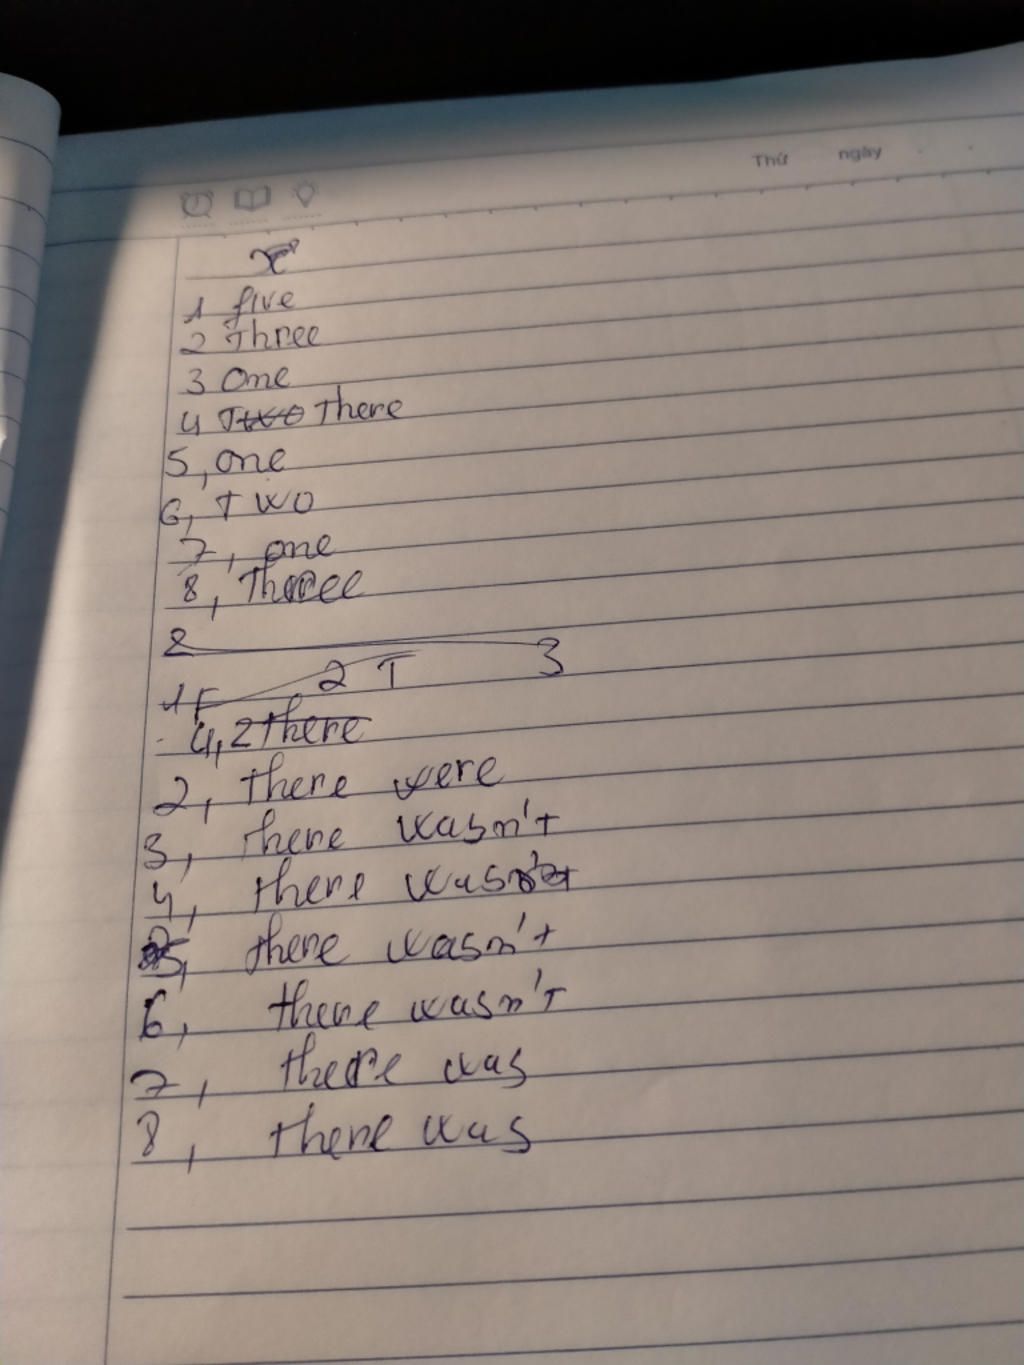 Thứ ngày
1 five
2 Three
3 one
4 Two There
5, one
6, Two
7, one
8, Three
2
3
2 T
1 F
4, 2 there
2, there were
3, there wasn't
4, there
5, there wasn't
6, there wasn't
7, there was
8, there was